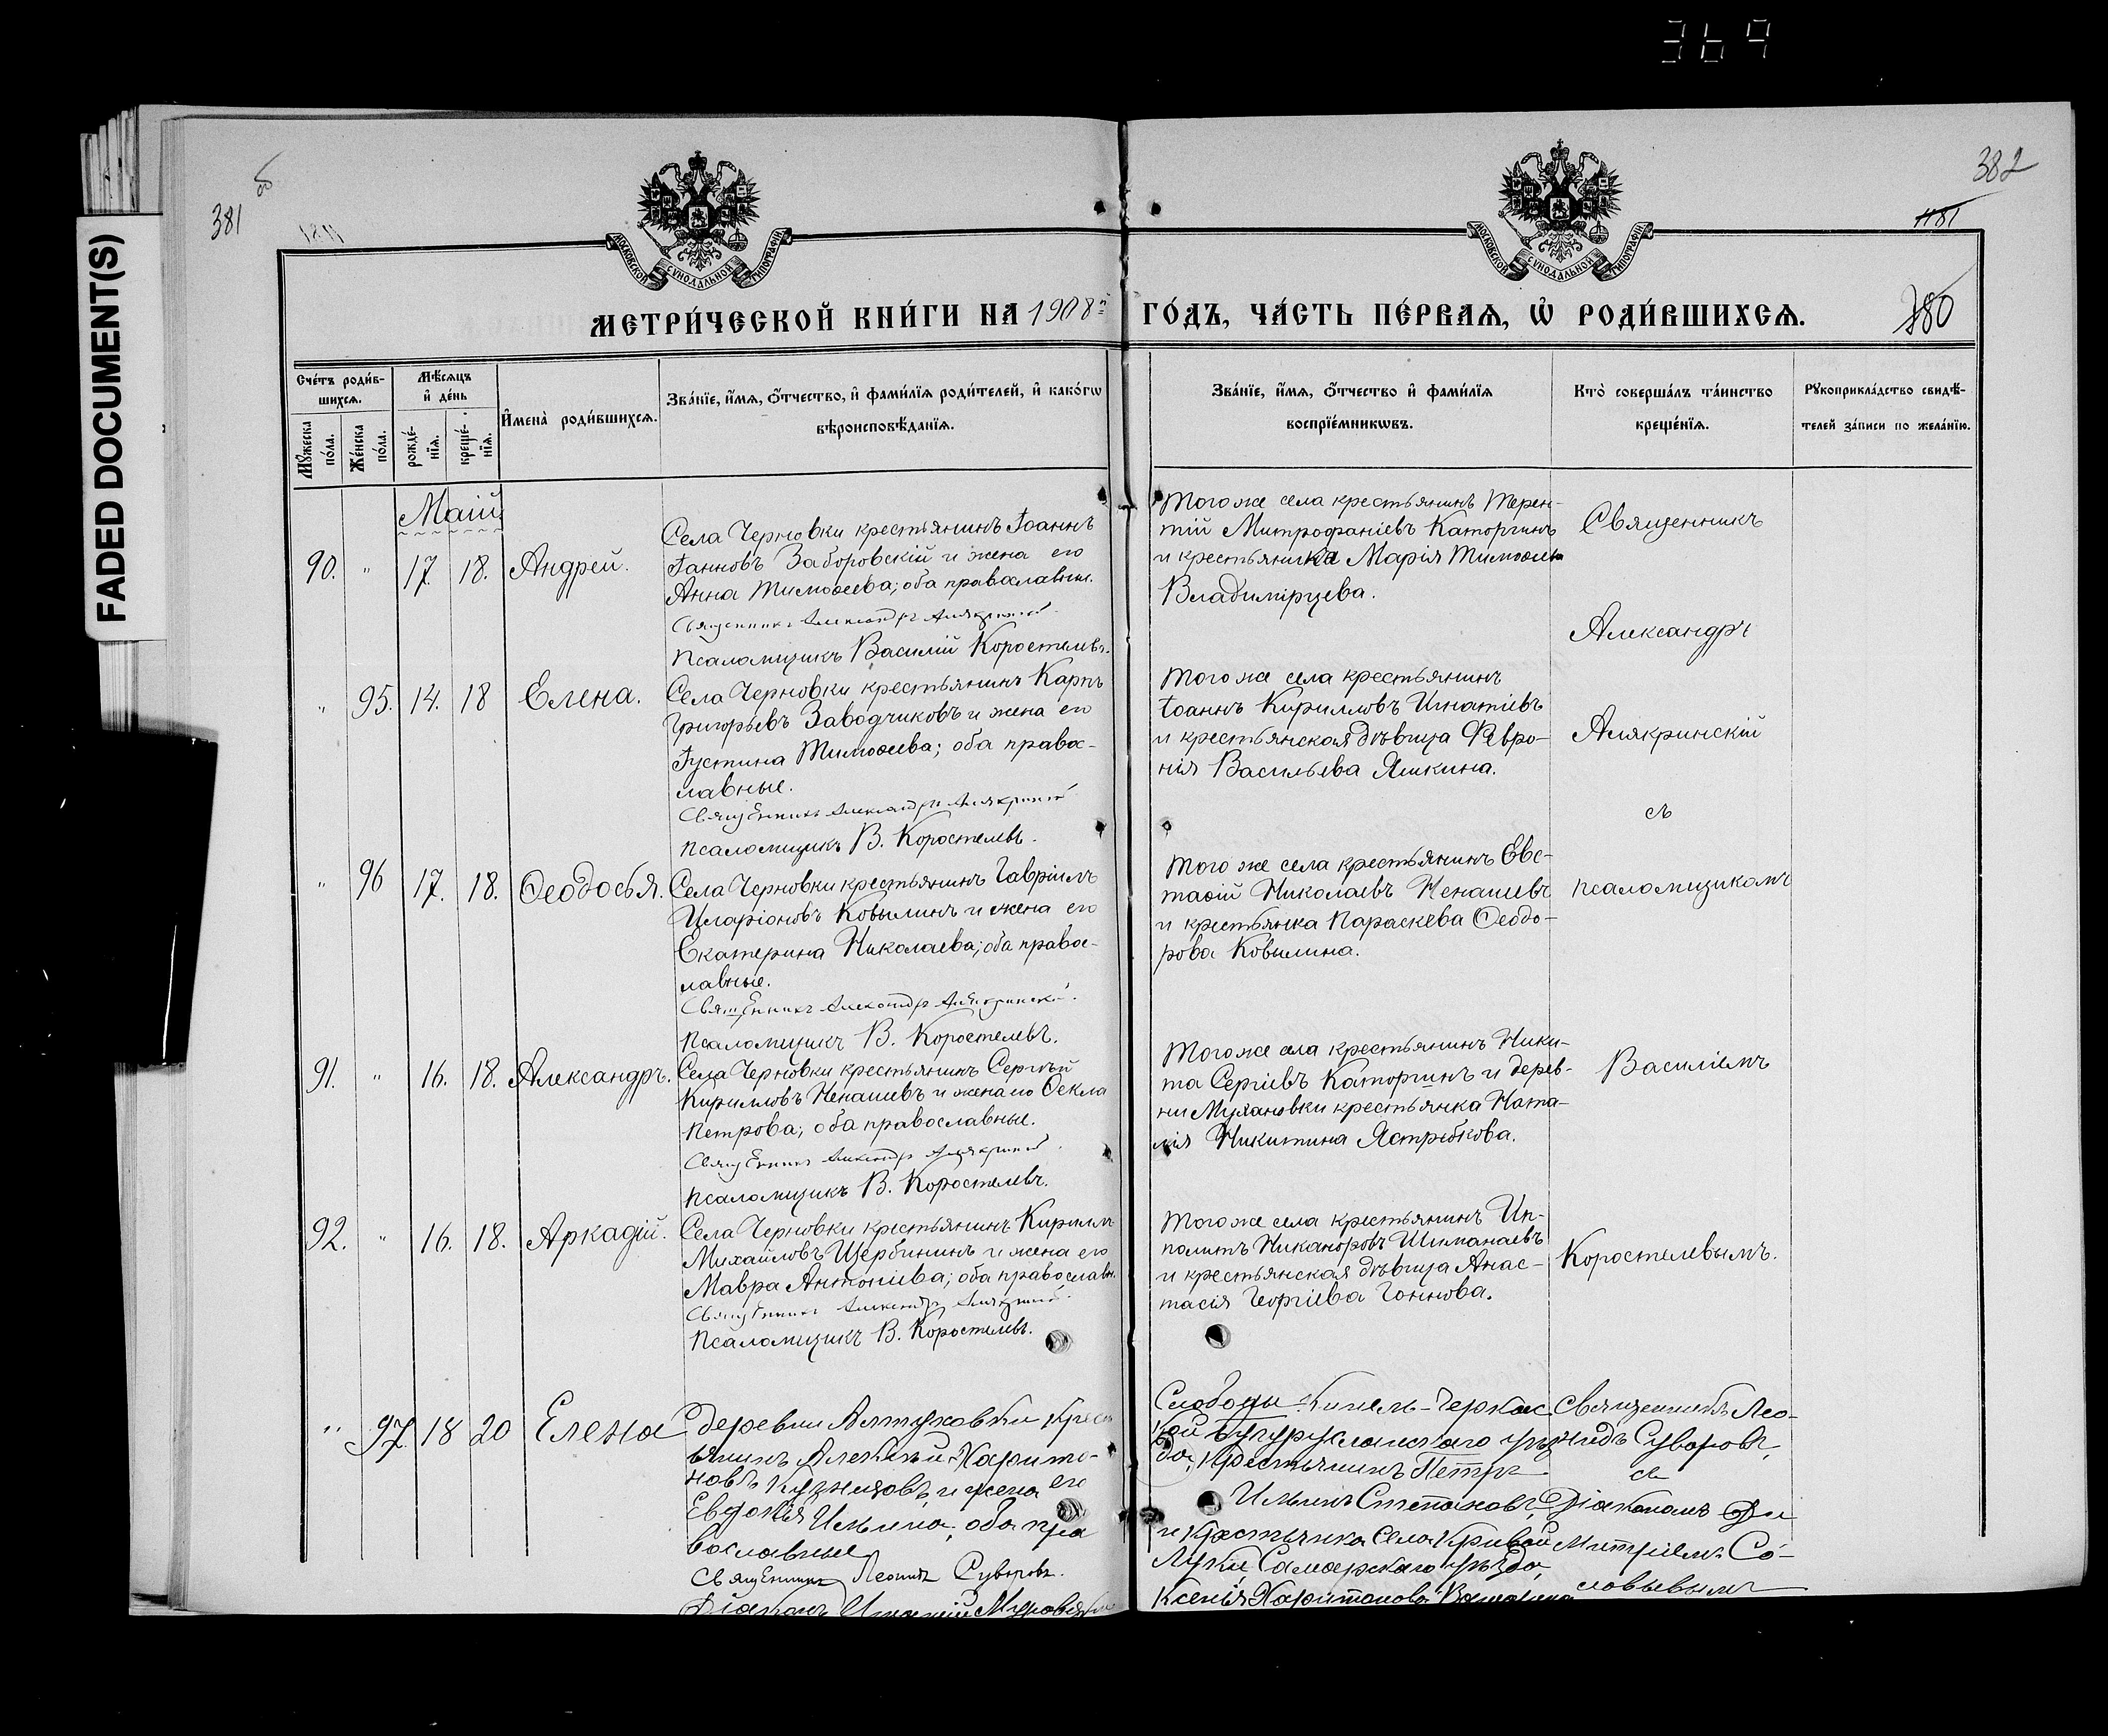 369
FADED DOCUMENT(S)
381
об
382
1181
380
МОСКОВСКОЙ СѴНОДАЛЬНОЙ ТИПОГРАФІИ
МОСКОВСКОЙ СѴНОДАЛЬНОЙ ТИПОГРАФІИ
МЕТРИ́ЧЕСКОЙ КНИ́ГИ НА 1908й ГО́ДЪ, ЧА́СТЬ ПЕ́РВАѦ, Ѽ РОДИ́ВШИХСѦ.
Сче́тъ роди́в-
шихсѧ.
Мꙋ́жеска
по́ла.
Же́нска
по́ла.
Мѣ́сѧцъ
и҆ де́нь
рожде́-
нїѧ.
креще́-
нїѧ.
И҆мена̀ роди́вшихсѧ.
Зва́нїе, и҆́мѧ, ѻ҆́тчество, и҆ фами́лїѧ роди́телей, и҆ како́гѡ
вѣроисповѣ́данїѧ.
Зва́нїе, и҆́мѧ, ѻ҆́тчество и҆ фами́лїѧ
воспрїе́мникѡвъ.
Кто̀ соверша́лъ та́инство
креще́нїѧ.
Рꙋкоприкла́дство свидѣ́-
телей за́писи по жела́нїю.
Маій
90. " 17. 18. Андрей.
Села Черновки крестьянинъ Іоаннъ
Іанновъ Заборовскій и жена его
Анна Тимоѳеева; оба православные.
Священникъ Александръ Алякринскій
Псаломщикъ Василій Коростелевъ.
Того же села крестьянинъ Терен-
тій Митрофаніевъ Каторгинъ
и крестьянка Марія Тимоѳеева
Владимірцева.
Священникъ
Александръ
Алякринскій
съ
псаломщикомъ
Василіемъ
Коростелевымъ.
" 95. 14. 18 Елена.
Села Черновки крестьянинъ Карпъ
Григорьевъ Заводчиковъ и жена его
Іустина Тимоѳеева; оба правос-
лавные.
Священникъ Александръ Алякринскій
Псаломщикъ В. Коростелевъ.
Того же села крестьянинъ
Іоаннъ Кирилловъ Игнатіевъ
и крестьянская дѣвица Февро-
нія Васильева Яшкина.
" 96 17. 18. Ѳеодосья.
Села Черновки крестьянинъ Гавріилъ
Иларіоновъ Ковылинъ и жена его
Екатерина Николаева; оба правос-
лавные.
Священникъ Александръ Алякринскій.
Псаломщикъ В. Коростелевъ.
Того же села крестьянинъ Евс-
таѳій Николаевъ Ненашевъ
и крестьянка Параскева Ѳеодо-
рова Ковылина.
91. " 16. 18. Александръ.
Села Черновки крестьянинъ Сергѣй
Кирилловъ Ненашевъ и жена его Ѳекла
Петрова; оба православные.
Священникъ Александръ Алякринскій.
Псаломщикъ В. Коростелевъ.
Того же села крестьянинъ Ники-
та Сергіевъ Каторгинъ и дерев-
ни Мухановки крестьянка Ната-
лія Никитина Ястребкова.
92. " 16. 18. Аркадій.
Села Черновки крестьянинъ Кириллъ
Михайловъ Щербининъ и жена его
Мавра Антоніева; оба православн.
Священникъ Александръ Алякринскій.
Псаломщикъ В. Коростелевъ.
Того же села крестьянинъ Ип-
политъ Никаноровъ
и крестьянская дѣвица Анас-
тасія Георгіева
" 97. 18 20 Елена
Деревни Алтуховки крест
ьянинъ Алексѣй Харито-
новъ Кузнецовъ и жена его
Евдокія Ильина; оба пра
вославные
Священникъ Леонидъ Суворовъ.
Діаконъ
Слободы Кинель-Черкас
кой Бугурусланскаго уѣз
да, крестьянинъ Петръ
Ильинъ Степановъ,
и крестьянка села Кривой
Луки Самарскаго уѣзда,
Ксенія Харитонова
Священникъ Лео-
нидъ Суворовъ,
съ
Діакономъ Ди
митріемъ Со-
ловьевымъ